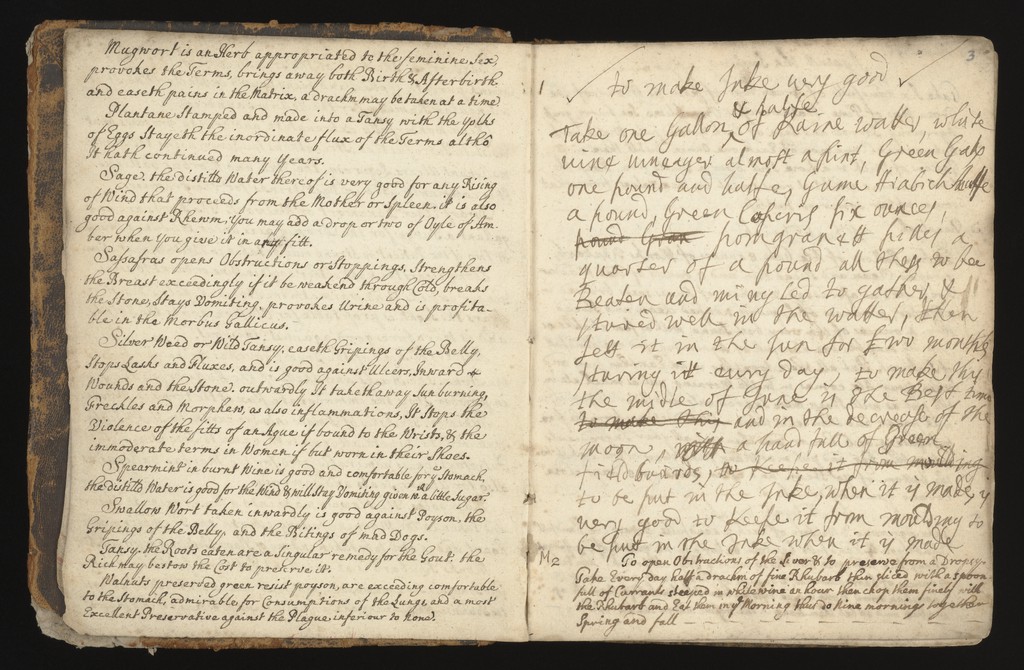 Mugwort is an Herb appropriated to the feminine Sex
provokes the Terms, brings away both Birth & Afterbirth
and easeth pains in the Matrix, a drachm may be taken at a time
Plantane Stamped and made into a Tansy with the yolks
of Eggs Stayeth the inordinate flux of the Terms altho
It hath continued many Years.
Sage, the distill'd Water thereof is very good for any Rising
of Wind that proceeds from the Mother or Spleen, it is also
good against Rhewm, You may add a drop or two of Oyle of Am-
ber when You give it in any fitt.
Sassafras opens Obstructions or Stoppings, Strengthens
the Breast exceedingly if it be weakend through Cold, breaks
the Stone, Stays Vomiting, provokes Urine and is profita-
ble in the Morbus Gallicus.
Silver Weed or Wild Tansy, easeth Gripings of the Belly,
Stops Lasks and Fluxes, and is good against Ulcers, Inward &
Wounds and the Stone. outwardly It takethaway Sunburning,
Freckles and Morphew, as also inflammations, It Stops the
Violence of the fitts of an Ague if bound to the Wrists, & the
immoderate terms in Women if but worn in their Shoes.
Spearmint in burnt Wine is good and comfortable for ye Stomach,
the distilld Water is good for the Wind & will Stay Vomiting given wt a little Sugar.
Swallow Wort taken inwardly is good against Poyson, the
Gripings of the Belly, and the Bitings of mad Dogs.
Tansy, the Roots eaten are a Singular remedy for the Gout. the
Rich may bestow the Cost to preserve it.
Walnuts preserved green resist poyson, are exceeding comfortable
to the Stomach, admirable for Consumptions of the Lungs, and a most
Excellent Preservative against the Plague inferiour to None.
3
1 to make Inke very good
& halfe
Take one Gallon of Raine watter, white
vine vineager almost a pint, Green Gals
one pound and halfe, Gume Arabick halfe
a pound, Green Coperis six ounces
pound Gran pomgranett pilles a
quarter of a pound all thes to bee
Beaten and mingled to gather, &
stured well in the watter, then
sett it in the sun for two months
sturing itt every day, to make this
the midle of June is the Best time
to make this and in the decrease of the
moon, with a hand full of Green
to keepe it from moulding
to be put in the Inke, when it is made, is
very good to keepe it from moulding to
be put in the Inke when it is made
M2 To open Obstructions of the Liver & to preserve from a Dropsy
Take Every day half a drachm of fine Rhubarb thin sliced with a spoon
full of Currants steeped in white wine an hour then chop them finely with
the Rhubarb and Eat them in ye Morning thus do Nine mornings together
Spring and fall